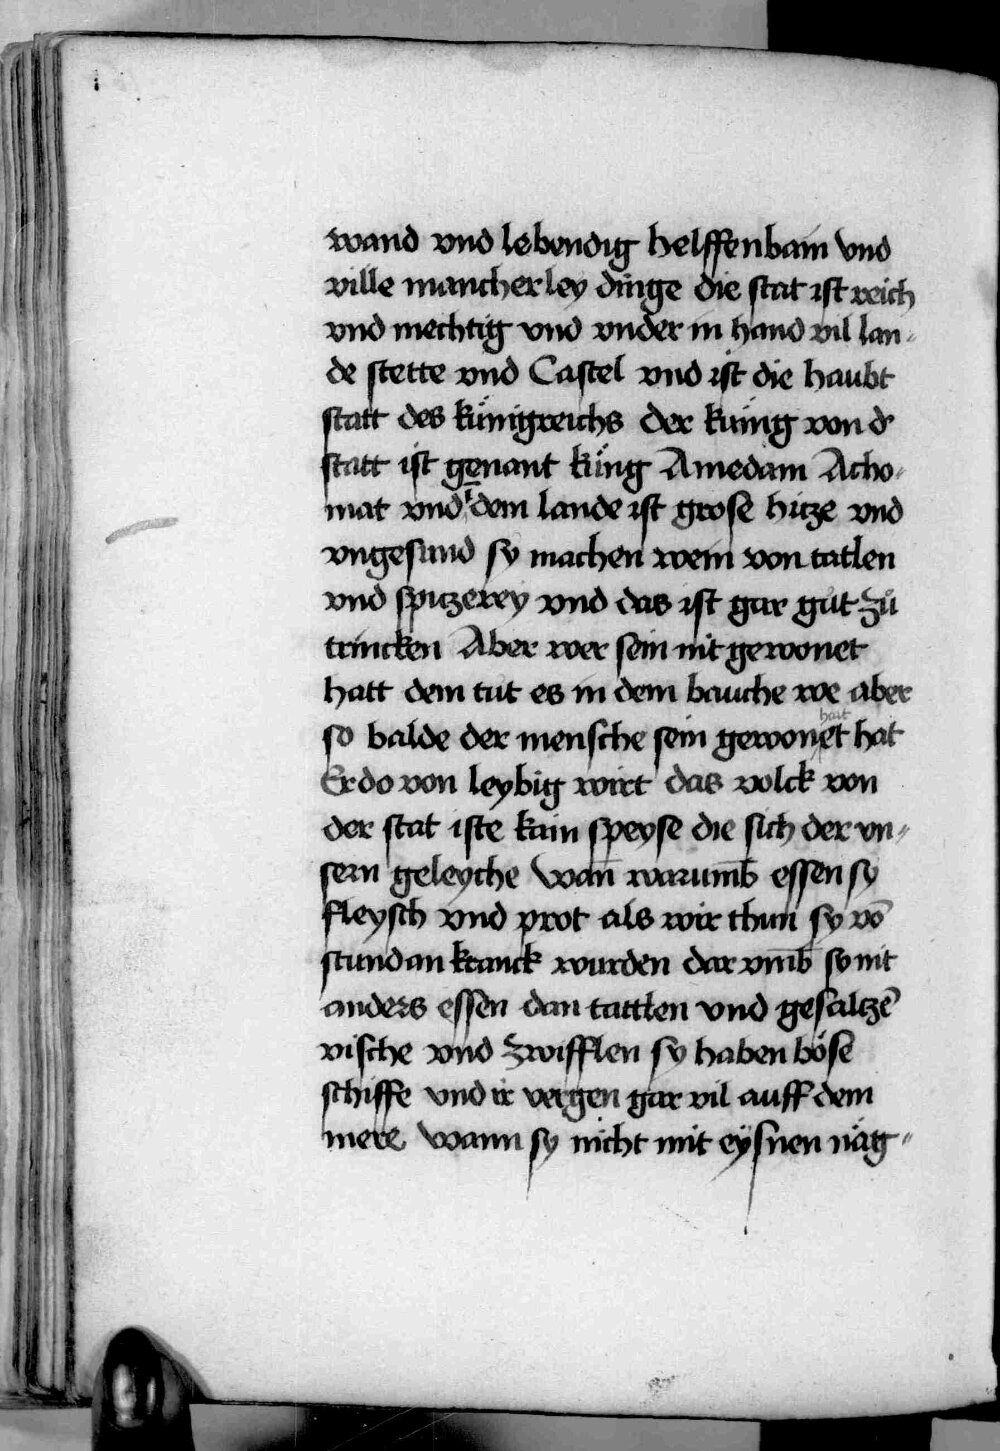 wand vnd lebendig helffenbain vnd
ville mancherley dinge die stat ist reich
vnd mechtig vnd vnder in hand vil lan-
de stette vnd Castel vnd ist die haubt
statt des künigreichs der küing von dʼ
statt ist genant küng Amedam Acho-
mat vnd i dem lande ist grose hitze vnd
vngesund sy machen wein von tatlen
vnd spitzerey vnd das ist gar gut zů
trincken Aber wer sein nit gewonet
hatt dem tut es in dem bauche we aber
so balde der mensche sein gewonet hat
Er do von leybig wirt das volck von
der stat iste kain speyse die sich der vn-
sern geleyche wan̄ warumb̄ essen sy
fleysch vnd prot als wir thun sy vō
stund an kranck wurden dar vmb̄ sy nit
anders essen dan tattlen vnd gesaltzē
vische vnd zwifflen sy haben böse
schiffe vnd ir vergen gar vil auff dem
mere wann sy nicht mit eÿsnen näg-